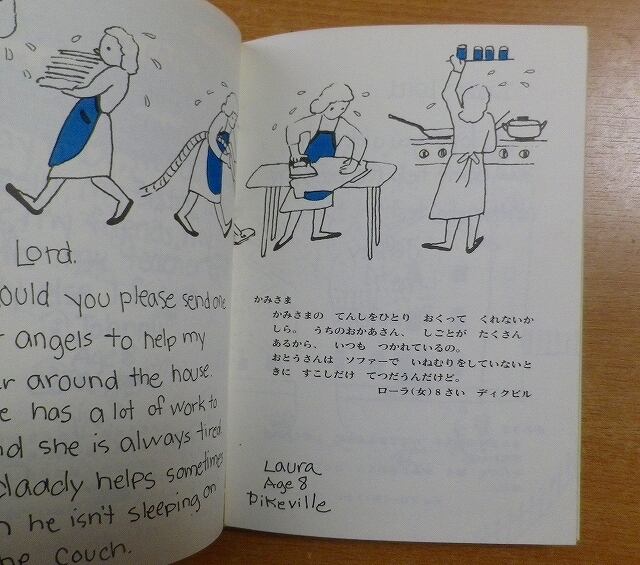 Lord.
ould you please send one
angels to help my
around the house.
has a lot of work to
she is always tired
daady helps sometimes
he isn't sleeping on
couch.
かみさま
かみさまの てんしをひとり おくって くれないか
しら。 うちのおかあさん、 しごとが たくさん
あるから、 いつも つかれているの。
おとうさんは ソファーで いねむりをしていないと
きに すこしだけ てつだうんだけど。
ローラ(女)8さい ディクビル
Laura
Age 8
Dikeville